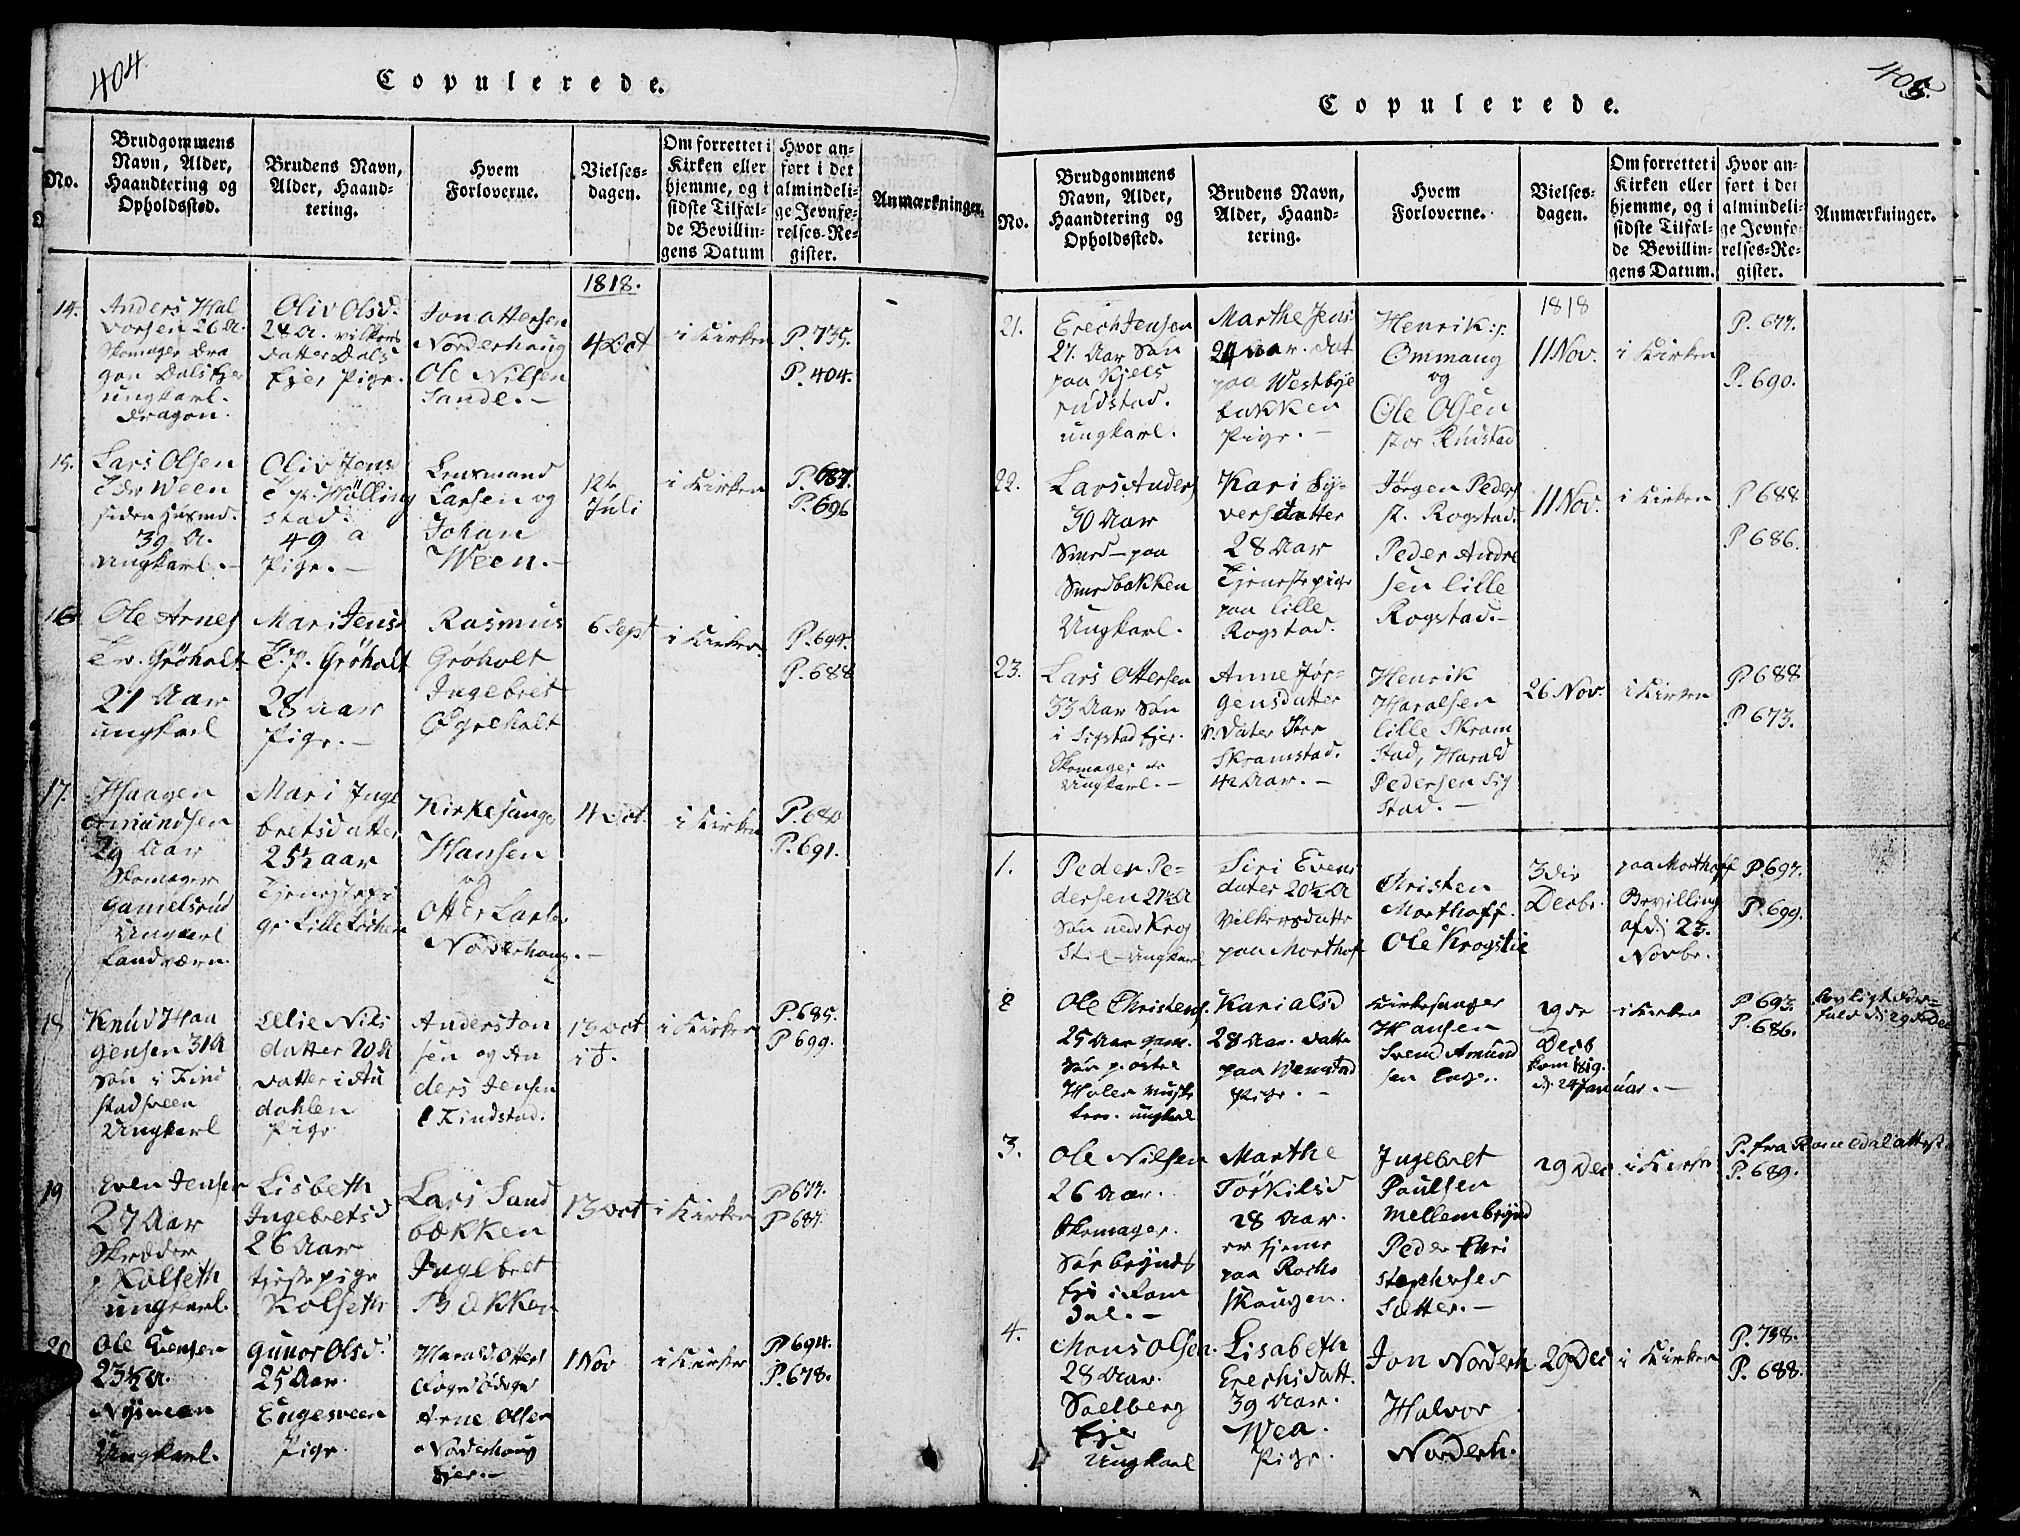 404
Copulerede.
No.
Brudgommens
Navn, Alder,
Haandtering og
Opholdssted.
Brudens Navn,
Alder, Haand-
tering.
Hvem
Forloverne.
Vielses-
dagen.
Om forrettet i
Kirken eller
hjemme, og i
sidste Tilfæl-
de Bevillin-
gens Datum
Hvor an-
ført i det
almindeli-
ge Jevnfø-
relses-Re-
gister.
Anmærkninger.
1818.
14.
Anders Hal
vorsen 26 A.
Skomager Dra
gon Dals Ejer
ungkarl.
Dragon.
Oliv Olsd.
24 A. vilkors
datter Dals
Ejer Pige.
Jon Ottersen
Norderhaug
Ole Nilsen
Sande. -
4 Oct
i Kirken
P. 735.
P. 404.
15.
Lars Olsen
Ween
39 A.
Ungkarl. -
Oliv Jensd
T. p. Hølling
stad.
49 a
Pige. -
Lensmand
Larsen og
Johan
Ween. -
12te
Juli
i Kirken
P. 687.
P. 696
16
Ole Arnes
Grøholt
27 Aar
ungkarl
Mari Jensd
T. p. Grøholt
28 Aar
Pige. -
Rasmus
Grøholt
Ingebret
Øgreholt
6 Sept
i Kirken.
P. 694.
P. 688
17.
Haagen
Amundsen
29 Aar
Skomager
Gamelsrud
Ungkarl
Landværn.
Mari Inge
bretsdatter
25½ aar
Tjenestepi
ge Lille
Kirkesange
Hansen
og
Otter Larsen
Norderhaug. -
4 Oct.
i Kirken
P. 680
P. 691.
18
Knud Haa
gensen 31 A
Søn i Find
stadsveen
Ungkarl
Olie Nils
datter 20 A
datter i Au
dahlen
Pige
Anders Jon
sen og An
ders Jensen
Findstad.
13 Oct
i Kirken
P. 685.
P 699.
19
Even Jensen
27 Aar
Skræder
p Kolseth
ungkarl.
Lisbeth
Ingebretsd
26 Aar
tjestepige
Kolseth
Lars Sand
bækken
Ingebret
Bækken
13 Oct
i Kirken
P 677.
P 687.
20
Ole Evensen
23½ A.
Nyeveen
Ungkarl.
Gunor Olsd.
25 Aar.
Engesveen
Pige.
Harald Otters
Arne Olsen
Norderhaug
Ejer. -
1 Nov
i Kirke
P 694.
P. 678.
405.
Copulerede.
No.
Brudgommens
Navn, Alder,
Haandtering og
Opholdssted.
Brudens Navn,
Alder, Haand-
tering.
Hvem
Forloverne.
Vielses-
dagen.
Om forrettet i
Kirken eller
hjemme, og i
sidste Tilfæl-
de Bevillin-
gens Datum.
Hvor an-
ført i det
almindeli-
ge Jevnfø-
relses-Re-
gister.
Anmærkninger.
1818
21.
Erech Jensen
27. Aar Søn
paa Kjels
rudstad.
ungkarl.
Marthe Jens
24 Aar. dat
paa Westbye
bakken
Pige. -
Henrik
Ommang
og
Ole Olsen
stor Rudstad
11 Nov.
i Kirken
P. 677.
P. 690.
22.
Lars Anders
30 Aar
Smed paa
Smedbakken
Ungkarl.
Kari Sy-
versdatter
28 Aar
Tjenestepige
paa lille
Rogstad.
Jørgen Peders
st. Rogstad.
Peder Andre
sen lille
Rogstad. -
11 Nov.
i Kirken
P 688
P 686.
23.
Lars Ottersen
33 Aar Søn
i Sigstad Ejer.
Skomager
Ungkarl. -
Anne Jør-
gensdatter
Skramstad.
42 Aar. -
Henrik
Haralsen
lille Skram
stad, Harald
Pedersen Sig
stad. -
26 Nov.
i Kirken
P 688
P 673.
1.
Peder Pe-
dersen 27½ A
Søn nedr Krog
stie - Ungkarl
Siri Evens
dater 20½ A
Vilkorsdatte
paa Morthof
Christen
Morthoff.
Ole Krogstie
3die
Decbr.
paa Morthoff
Bevilling
af d. 23.
Novbr.
P 697.
P. 699.
2
Ole Christens
25 Aar gam.
Søn p østre
Holen
ungkarl
Kari Olsd
28 Aar. datte
paa Wenstad
Pige. -
Kirkesanger
Hansen
Svend Amund
sen
29de
Decb
kom 1819.
d. 24 Januar. -
i Kirken
P 693.
P. 686.
3.
Ole Nilsen
26 Aar.
Skomager.
Sør brynds
Eje i Rom
dal. -
Marthe
Torkilsd
28 Aar.
er hjeme
paa Rochs
Haugen.
Ingebret
Paulsen
mellem brynd
Peder Chri
stophersen
Sætter. -
29 Dec
i Kirke
P. fra Romedal attest
P. 689.
4.
Mons Olsen.
28 Aar.
Saelberg
Ejer
Ungkarl
Lisabeth
Erechsdatt.
39 Aar.
Wea.
Pige.
Jon Norderh.
Halvor
Norderh.
29 Dec
i Kirken
P. 738.
P. 688.